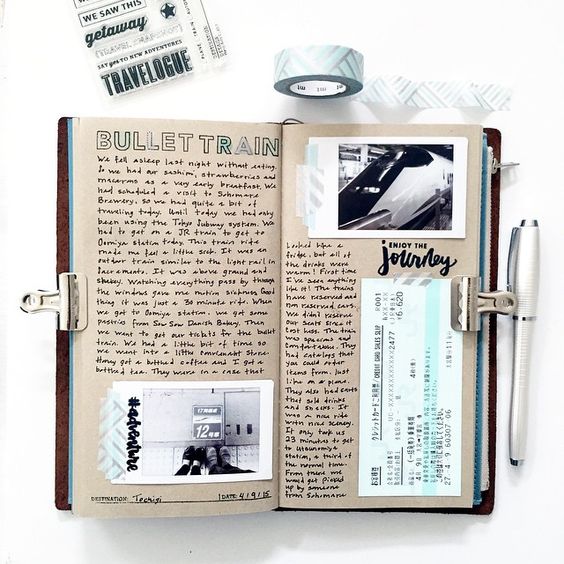 WE SAW THIS
getaway
TRAVEL SNAPSHOT
SAY yes TO NEW ADVENTURES
TRAVELOGUE
mt
BULLET TRAIN
We fell asleep last night without eating.
So we had our sashimi, strawberries and
macarons as a very early breakfast. We
had scheduled a visit to Sohomare
Brewery, so we had quite a bit of
traveling today. Until today we had only
been using the Tokyo Subway system. We
had to get on a JR train to get to
Oomiya station today. This train ride
made me feel a little sick. It was an
outdoor train similar to the light rail in
Sacramento. It was above ground and
shakey. Watching everything pass by through
the windows gave me motion sickness. Good
thing it was just a 30 minute ride. When
we got to Oomiya station, we got some
pastries from Sow Sow Danish Bakery. Then
we went to get our tickets to the bullet
train. We had a little bit of time so
we went into a little convenient store.
Hong got a bottled coffee and I got a
bottled tea. They were in a case that
#adventure
17両編成
12号
DESTINATION: Tochigi
DATE: 4/9/15
looked like a
fridge, but all of
the drinks were
warm! First time
I've seen anything
like it! The trains
have reserved and
non reserved cars.
We didn't reserve
our seats since it
cost extra. The train
was spacious and
comfortable. They
had catalogs that
you could order
items from. Just
like on a plane.
They also had carts
that sold drinks
and snacks. It
was a nice ride
with nice scenery.
It only took us
23 minutes to get
to Utsunomiya
station, a third of
the normal time.
From there we
would get picked
up by someone
from Sohomare
ENJOY THE
journey
クレジットカードご利用票/CREDIT CARD SALES SLIP
R001
¥6,620